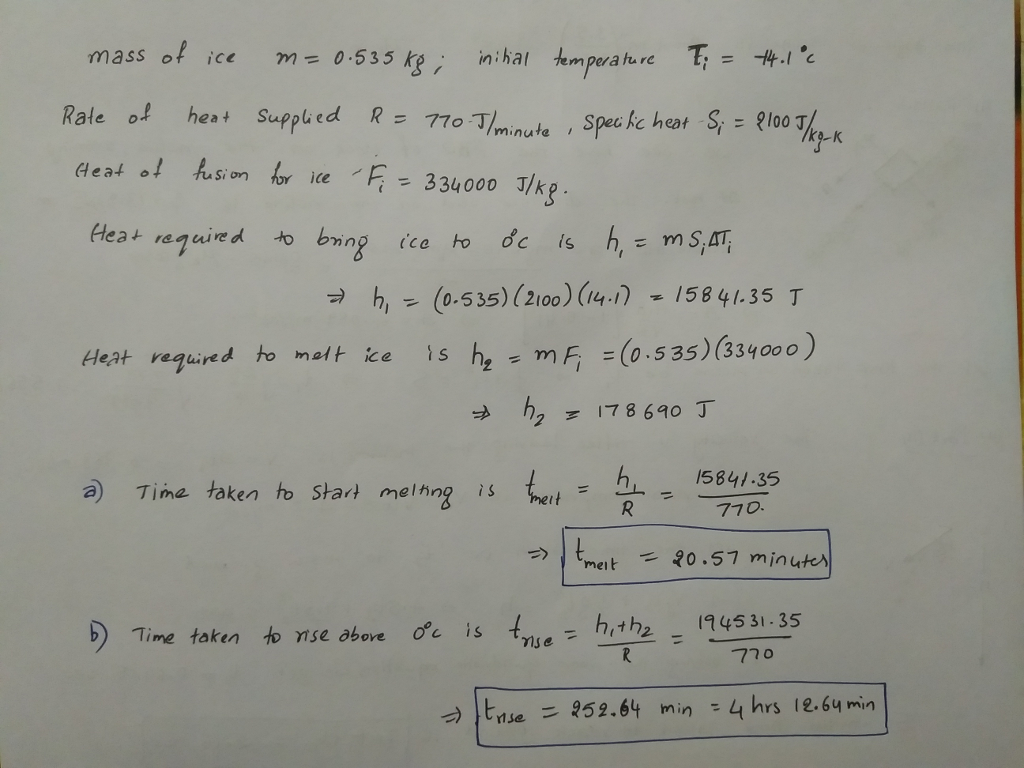 mass of ice m = 0.535 kg ; initial temperature Ti = -14.1 °c
Rate of heat Supplied R = 770 J/minute , Specific heat Si = 2100 J/kg-K
Heat of fusion for ice Fi = 334000 J/kg.
Heat required to bring ice to 0°c is h₁ = m Si ΔTi
⇒ h₁ = (0.535)(2100)(14.1) = 15841.35 J
Heat required to melt ice is h₂ = m Fi = (0.535)(334000)
⇒ h₂ = 178690 J
a) Time taken to Start melting is tmelt = h₁/R = 15841.35/770.
⇒ tmelt = 20.57 minutes
b) Time taken to rise above 0°c is trise = h₁+h₂/R = 194531.35/770
⇒ trise = 252.64 min = 4 hrs 12.64 min